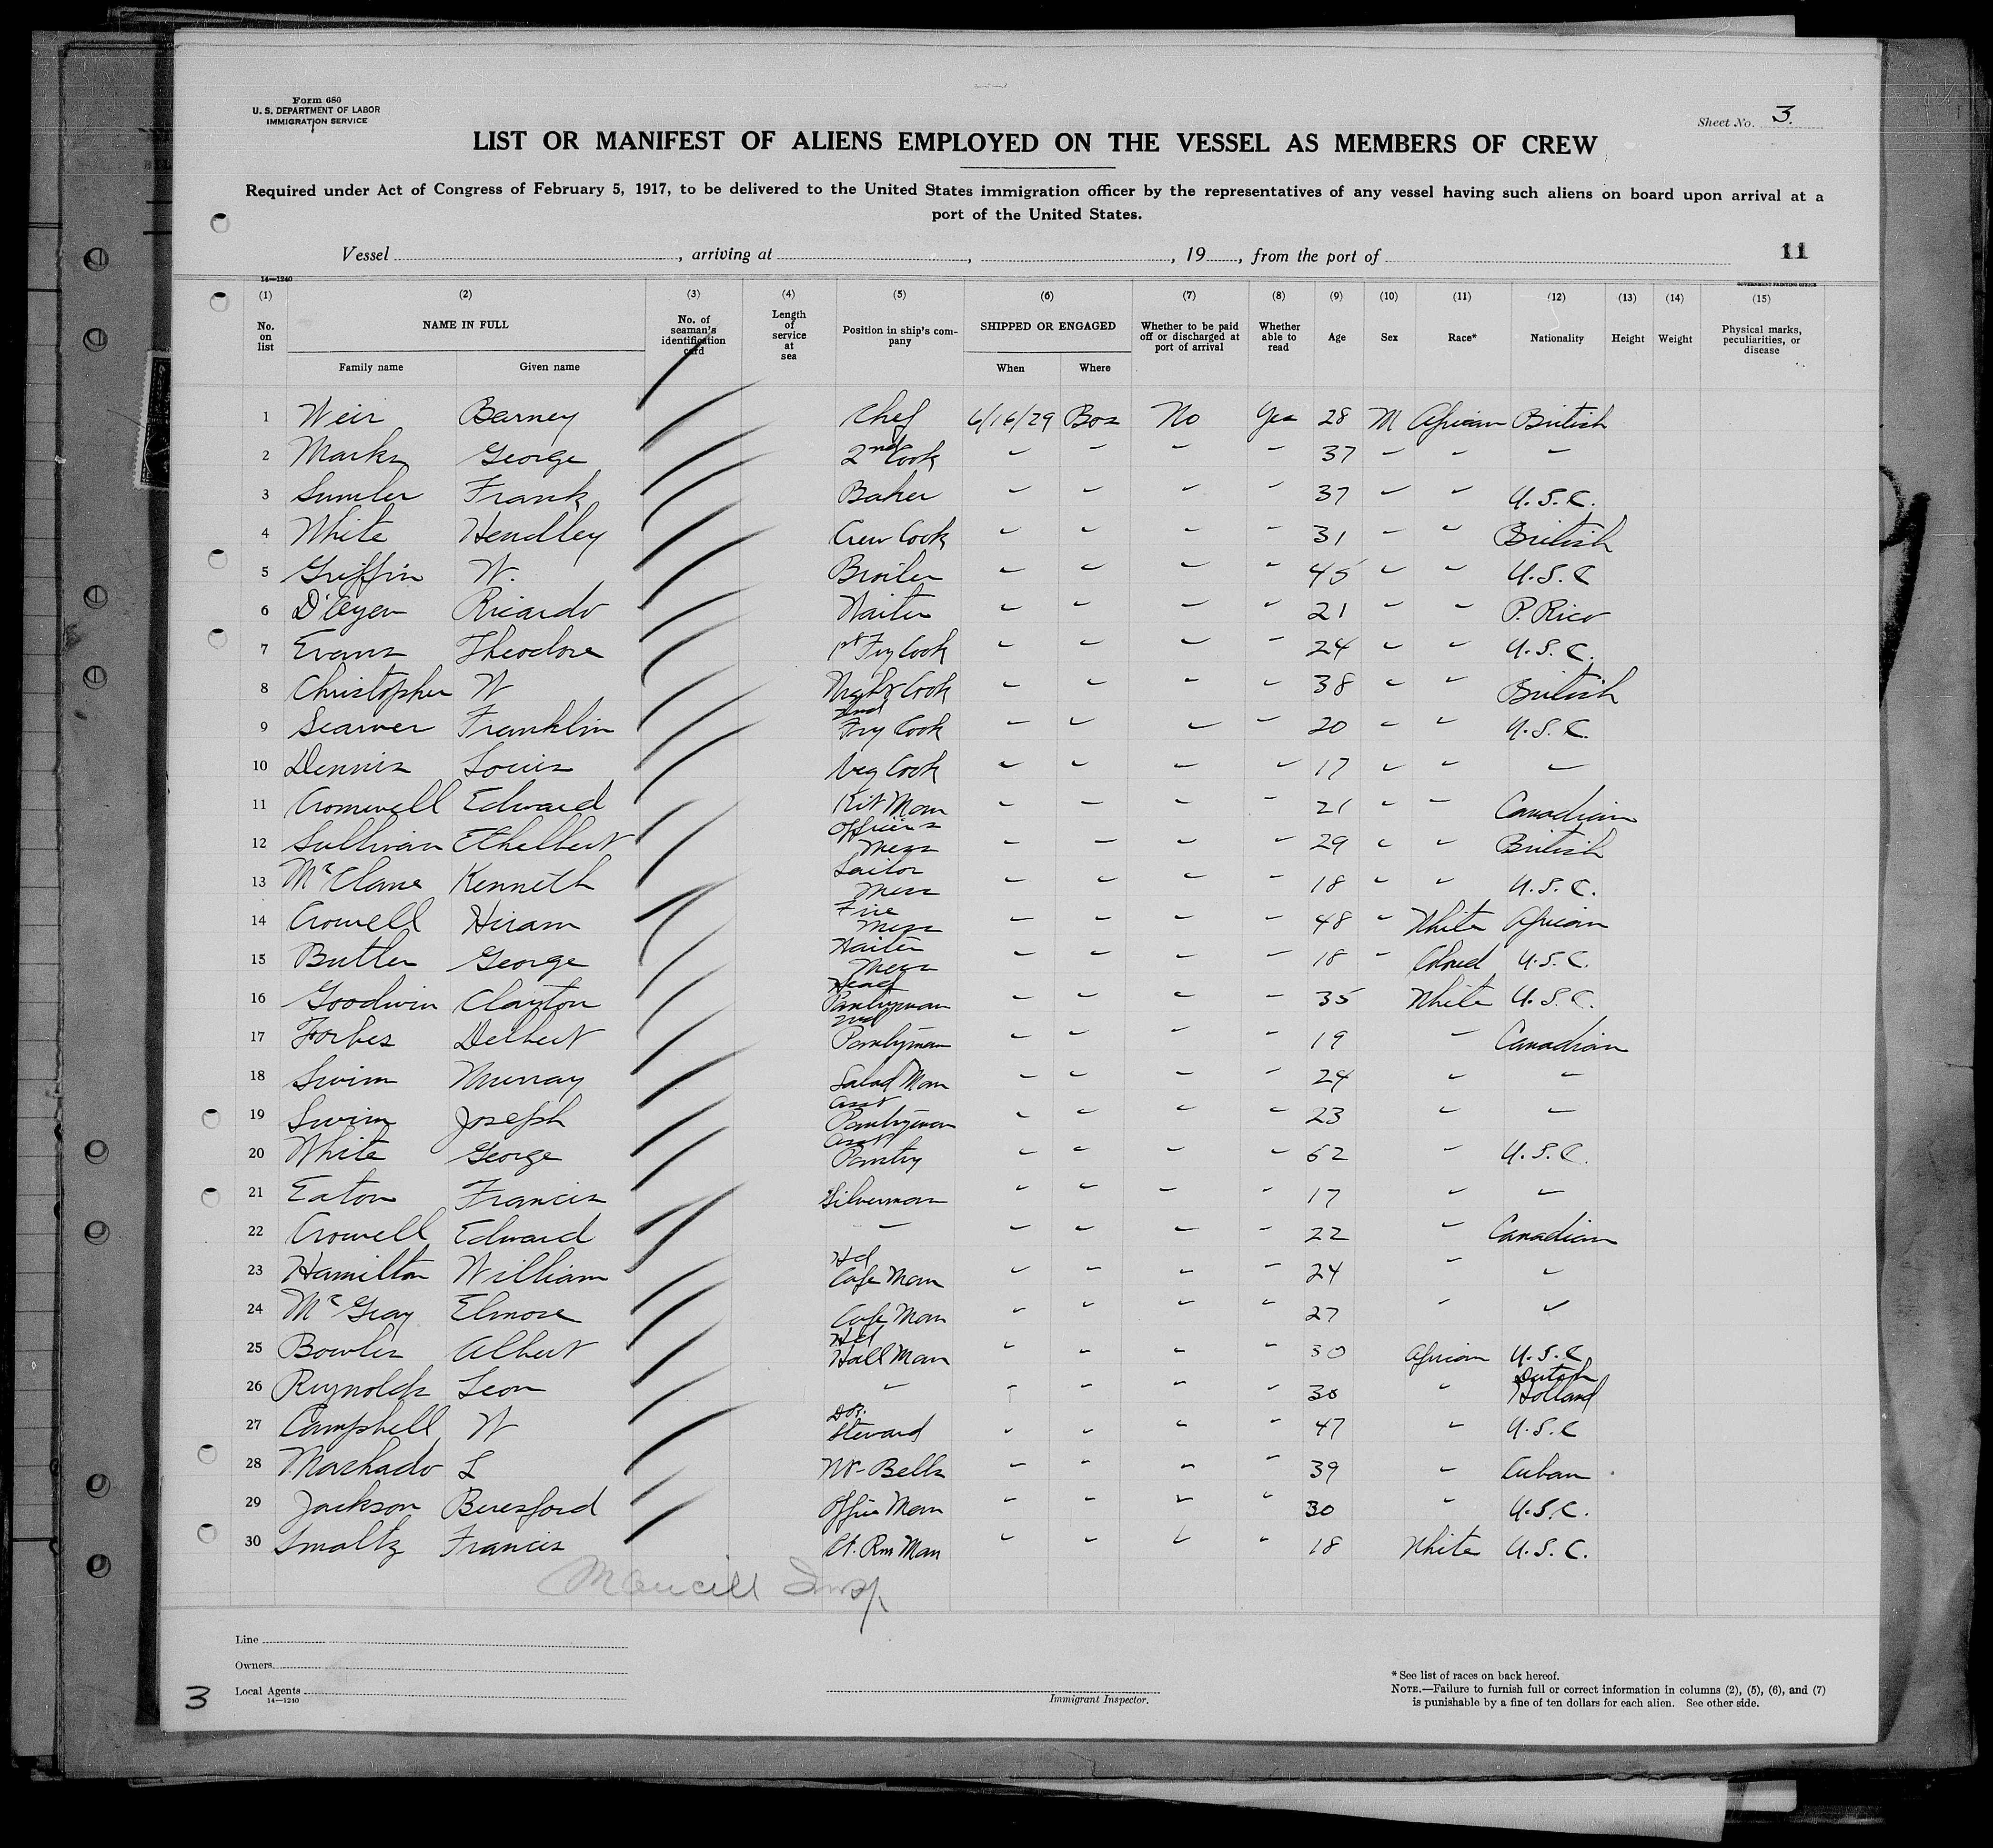 Form 680
U. S. DEPARTMENT OF LABOR
IMMIGRATION SERVICE
Sheet No. 3.
LIST OR MANIFEST OF ALIENS EMPLOYED ON THE VESSEL AS MEMBERS OF CREW
Required under Act of Congress of February 5, 1917, to be delivered to the United States immigration officer by the representatives of any vessel having such aliens on board upon arrival at a
port of the United States.
Vessel , arriving at , , 19 , from the port of 11
14—1240 GOVERNMENT PRINTING OFFICE
(1) (2) (3) (4) (5) (6) (7) (8) (9) (10) (11) (12) (13) (14) (15)
No. on list NAME IN FULL Family name Given name No. of seaman's identification card Length of service at sea Position in ship's company SHIPPED OR ENGAGED When Where Whether to be paid off or discharged at port of arrival Whether able to read Age Sex Race* Nationality Height Weight Physical marks, peculiarities, or disease
1 Weir Barney Chef 6/16/29 Bos No Yes 28 M African British
2 Marks George 2nd Cook - - - - 37 - - -
3 Sumler Frank Baker - - - - 37 - - U.S.C.
4 White Hendley Crew Cook - - - - 31 - - British
5 Griffin W. Broiler - - - - 45 - - U.S.C
6 Ricardo Waiter - - - - 21 - - P. Rico
7 Evans Theodore 1st Fry Cook - - - - 24 - - U.S.C.
8 Christopher W Night Cook - - - - 38 - - British
9 Searver Franklin 2nd Fry Cook - - - - 20 - - U.S.C.
10 Dennis Louis Veg Cook - - - - 17 - - -
11 Cromwell Edward Kit Man - - - - 21 - - Canadian
12 Sullivan Ethelbert Officers Mess - - - - 29 - - British
13 McClane Kenneth Sailor Mess - - - - 18 - - U.S.C.
14 Crowell Hiram Fire Mess - - - - 48 - White African
15 Butler George Waiter Mess - - - - 18 - Colored U.S.C.
16 Goodwin Clayton Head Pantryman - - - - 35 White U.S.C.
17 Forbes Delbert 2nd Pantryman - - - - 19 - Canadian
18 Swim Murray Salad Man - - - - 24 - -
19 Swim Joseph Asst Pantryman - - - - 23 - -
20 White George Asst Pantry - - - - 62 - U.S.C.
21 Eaton Francis Silverman - - - - 17 - -
22 Crowell Edward - - - - - 22 - Canadian
23 Hamilton William Hd Cafe Man - - - - 24 - -
24 McGray Elmore Cafe Man - - - - 27 - -
25 Bowler Albert Hd Hall Man - - - - 30 African U.S.C.
26 Reynolds Leon - - - - - 30 - Dutch Holland
27 Campbell W D.R. Steward - - - - 47 - U.S.C
28 Machado L Nt-Bells - - - - 39 - Cuban
29 Jackson Beresford Office Man - - - - 30 - U.S.C.
30 Smaltz Francis St. Rm Man - - - - 18 White U.S.C.
Insp
Line
Owners
Local Agents
14—1240
Immigrant Inspector.
* See list of races on back hereof.
NOTE.—Failure to furnish full or correct information in columns (2), (5), (6), and (7)
is punishable by a fine of ten dollars for each alien. See other side.
3